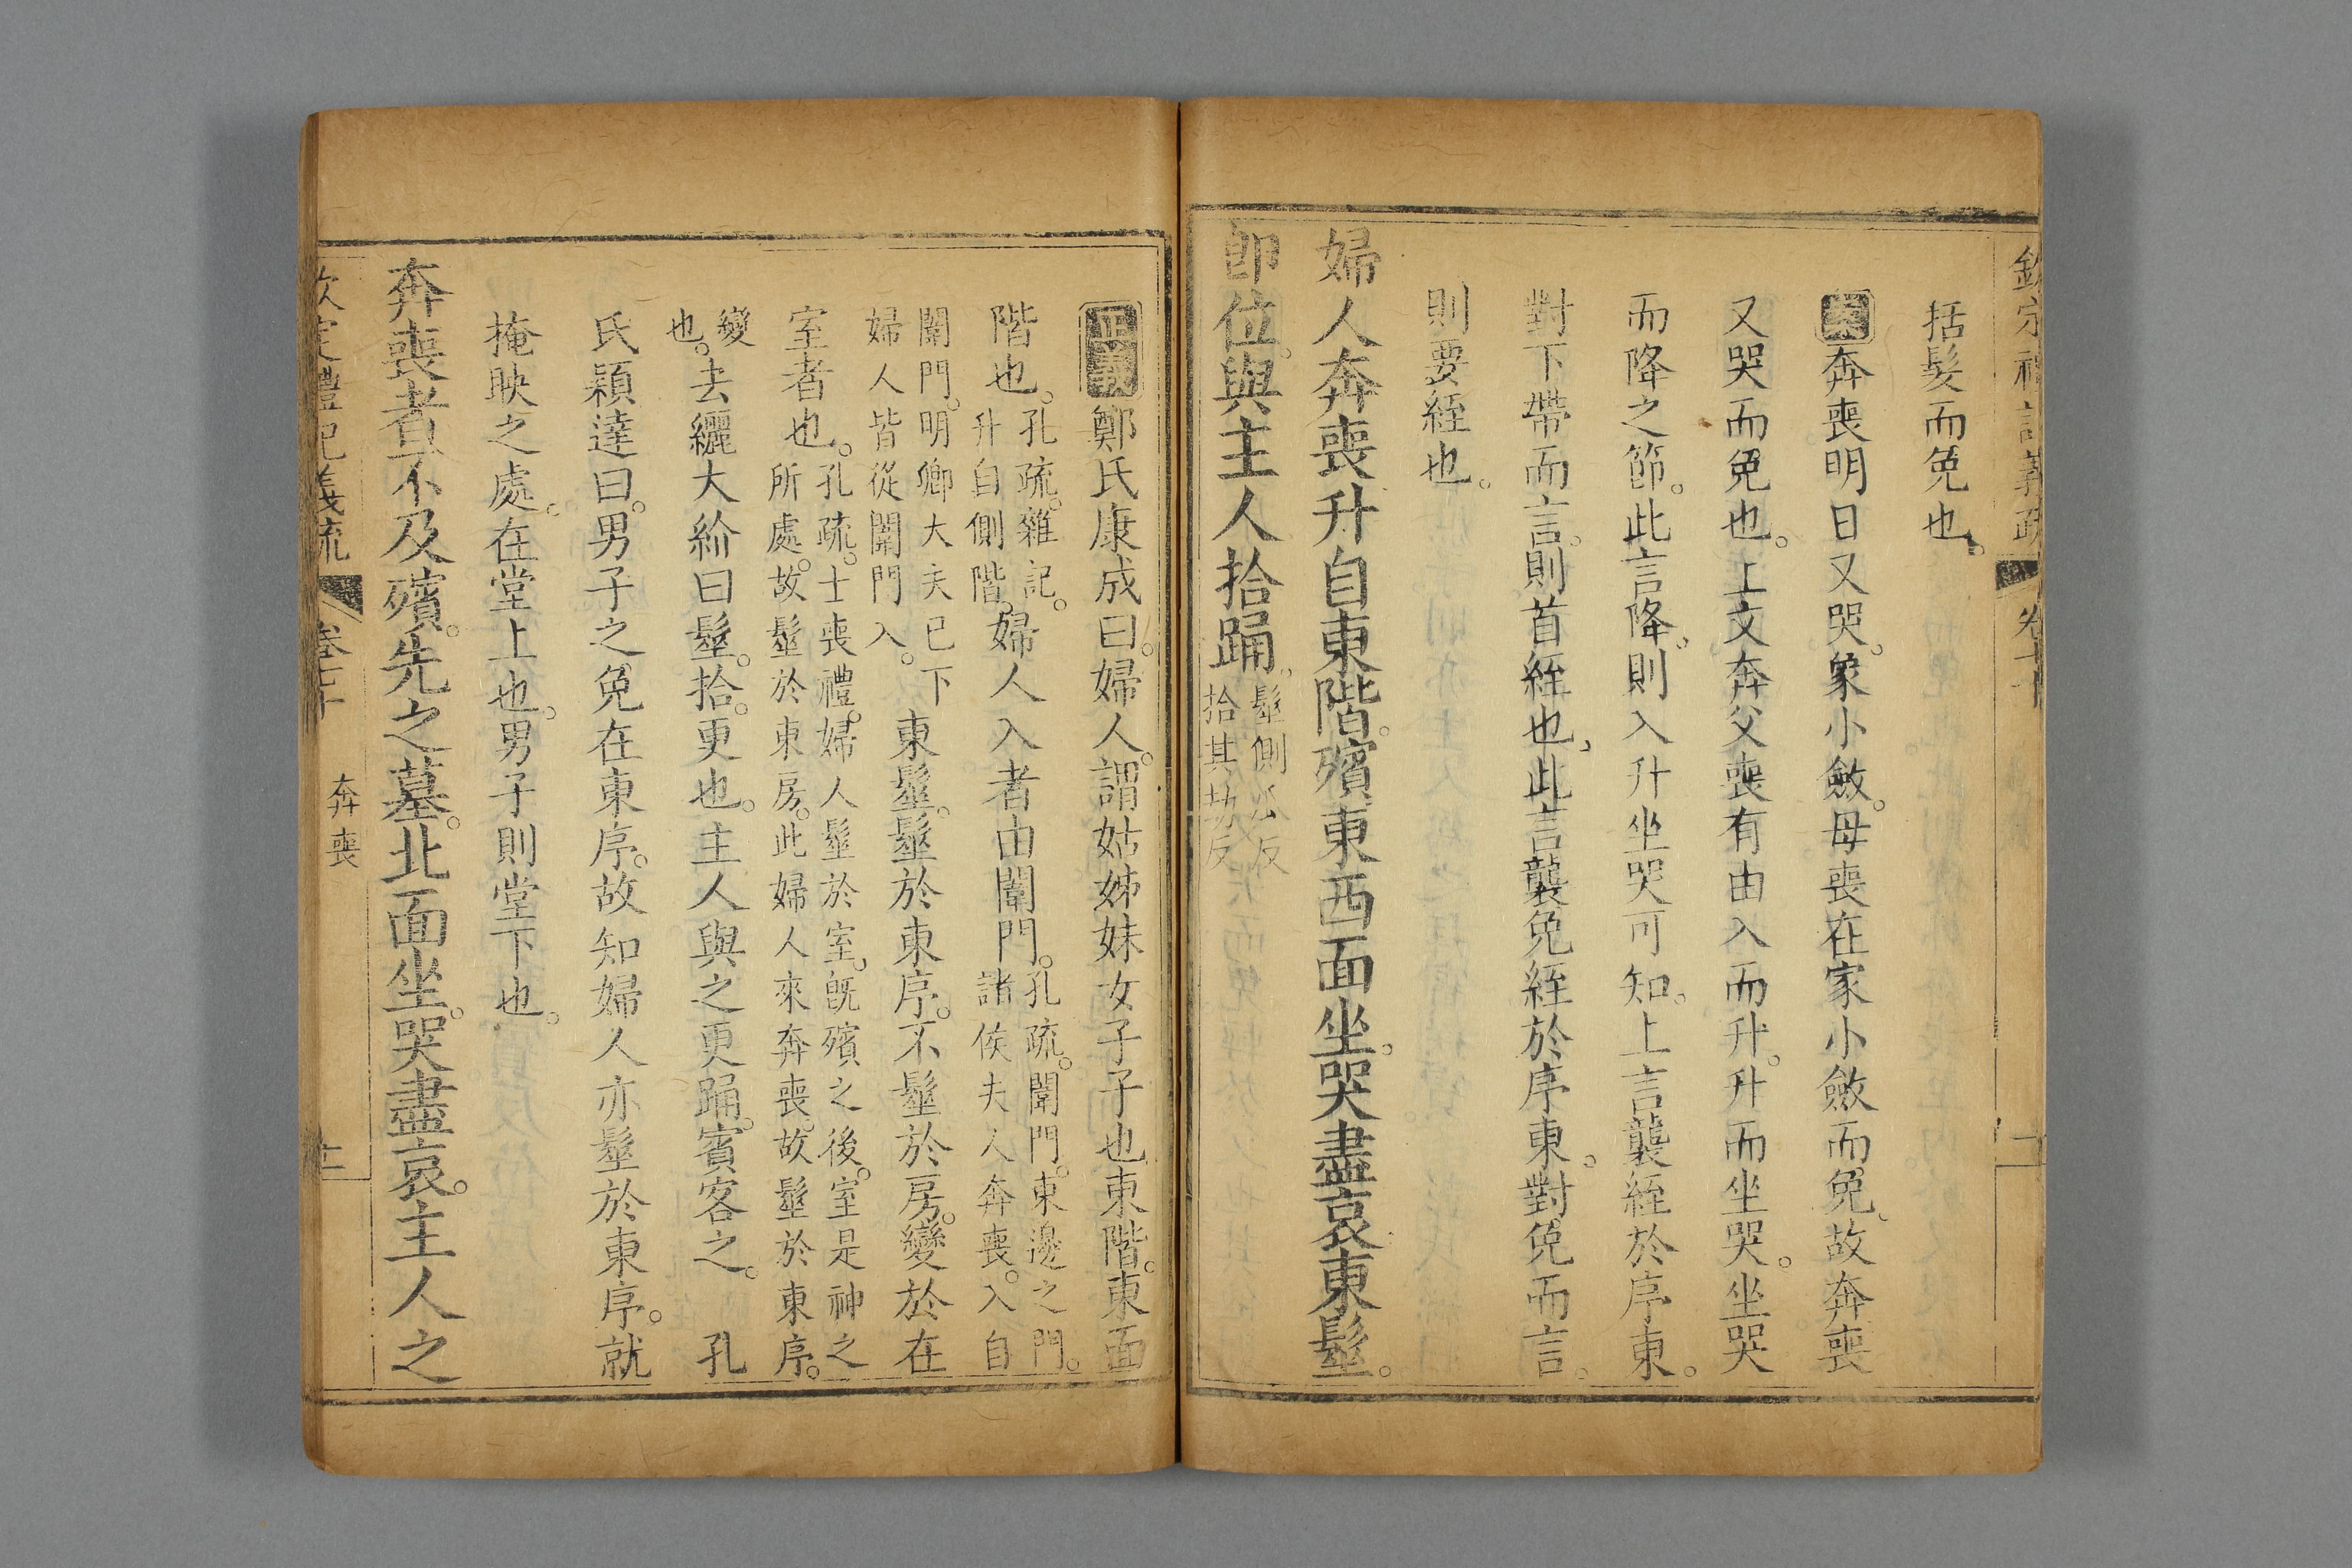 括髪而免也
案奔喪明日又哭。象小斂。母喪在家小斂而免。故奔喪
又哭而免也。上文奔父喪有由入而升。升而坐哭。坐哭
而降之節。此言降。則入升坐哭可知。上言襲絰於序東。
對下帶而言。則首絰也。此言襲免絰於序東。對免而言。
則要絰也。
婦人奔喪升自東階。殯東西面坐。哭盡哀東髽。
卽位。與主人拾踊。
髽側瓜反
拾其劫反
卷七十
正義鄭氏康成曰。婦人。謂姑姊妹女子子也東階。東面
階也。孔疏。雜記。升自側階。婦人入者由闈門。孔疏。闈門。東邊之門。諸侯夫人奔喪。入自
闈門。明卿大夫已下婦人皆從闈門入。東髽。髽於東序。不髽於房。變於在
室者也。孔疏。士喪禮。婦人髽於室。既殯之後。室是神之所處。故髽於東房。此婦人來奔喪。故髽於東序。
變也。去纚大紒曰髽。拾。更也。主人與之更踊。賓客之。孔
氏穎達曰。男子之免在東序。故知婦人亦髽於東序。就
掩映之處。在堂上也。男子則堂下也。
奔喪者不及殯。先之墓。北面坐。哭盡哀。主人之
欽定禮記義疏 卷七十 奔喪